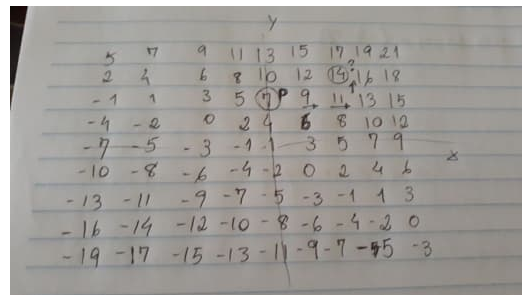 y
5 7 9 11 13 15 17 19 21
2 4 6 8 10 12 14 ? 16 18
-1 1 3 5 7 P 9 11 13 15
-4 -2 0 2 4 6 8 10 12
-7 -5 -3 -1 1 3 5 7 9
x
-10 -8 -6 -4 -2 0 2 4 6
-13 -11 -9 -7 -5 -3 -1 1 3
-16 -14 -12 -10 -8 -6 -4 -2 0
-19 -17 -15 -13 -11 -9 -7 -5 -3